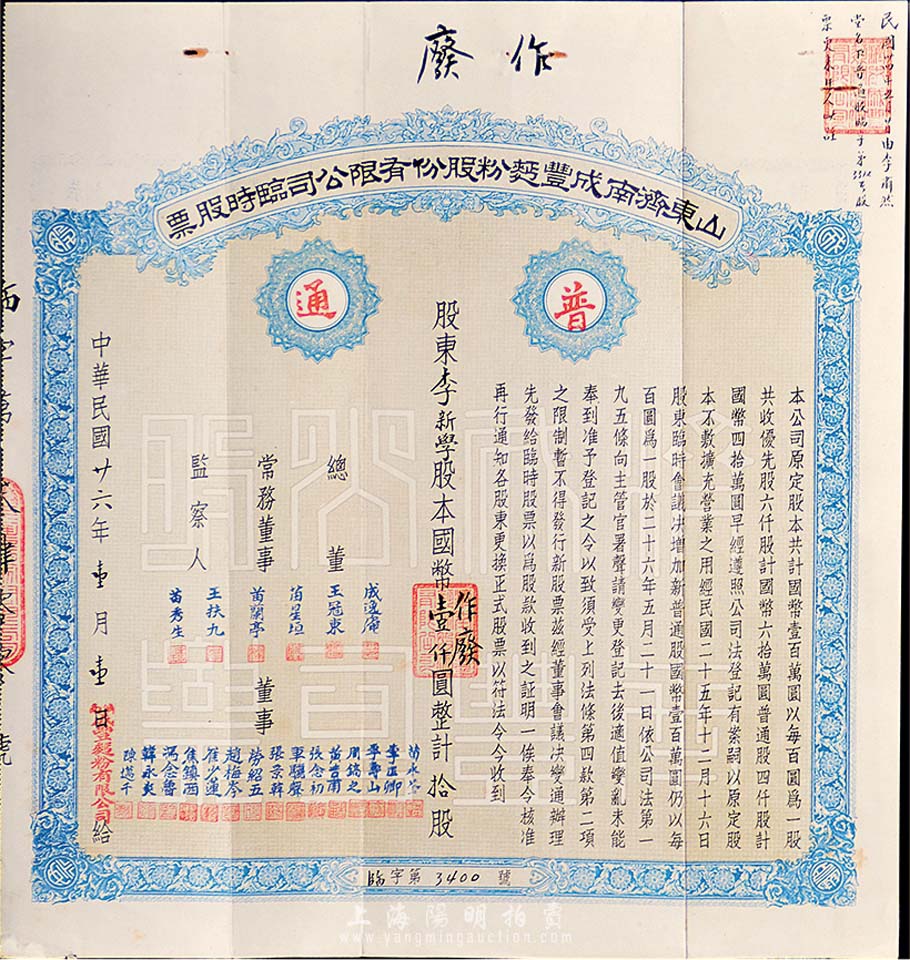 作廢
民國
山東濟南成豐麵粉股份有限公司臨時股票
普通
本公司原定股本共計國幣壹百萬圓以每百圓爲一股
共收優先股六仟股計國幣六拾萬圓普通股四仟股計
國幣四拾萬圓早經遵照公司法登記有案嗣以原定股
本不敷擴充營業之用經民國二十五年十二月十六日
股東臨時會議决增加新普通股國幣壹百萬圓仍以每
百圓爲一股於二十六年五月二十一日依公司法第一
九五條向主管官署聲請變更登記去後適值變亂未能
奉到准予登記之令以致須受上列法條第四款第二項
之限制暫不得發行新股票茲經董事會議决變通辦理
先發給臨時股票以爲股款收到之証明一俟奉令核准
再行通知各股東更換正式股票以符法令今收到
股東李新學股本國幣壹仟圓整計拾股
作廢
總董
成逸庵
王冠東
常務董事
苗星垣
苗蘭亭
監察人
王扶九
苗秀生
董事
張念初
張景韓
勞紹五
趙梅岑
崔少運
焦鎮西
馮念魯
韓永炎
中華民國廿六年壹月壹日
給
臨字第3400號
上海陽明拍賣
www.yangmingauction.com